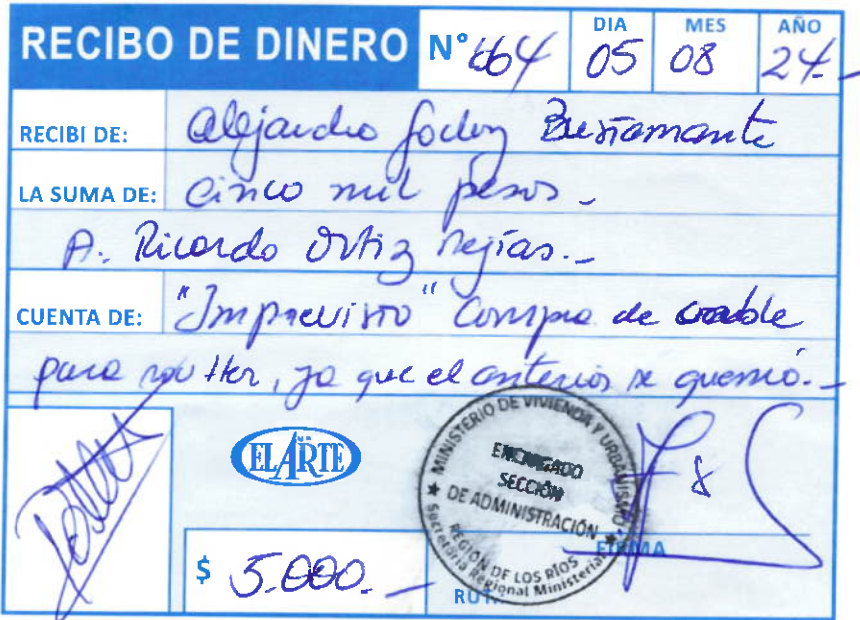 RECIBO DE DINERO N° 664 DIA 05 MES 08 AÑO 24.-
RECIBI DE: Alejandro Godoy Bustamante
LA SUMA DE: Cinco mil pesos.-
A: Ricardo Ortiz Mejías.-
CUENTA DE: "Imprevisto" Compra de cable
para routter, ya que el anterior se quemó.-
EL ARTE
MINISTERIO DE VIVIENDA Y URBANISMO
ENCARGADO
SECCIÓN
DE ADMINISTRACIÓN
REGIÓN DE LOS RÍOS
Secretaría Regional Ministerial
FIRMA
$ 5.000.-
RUT: